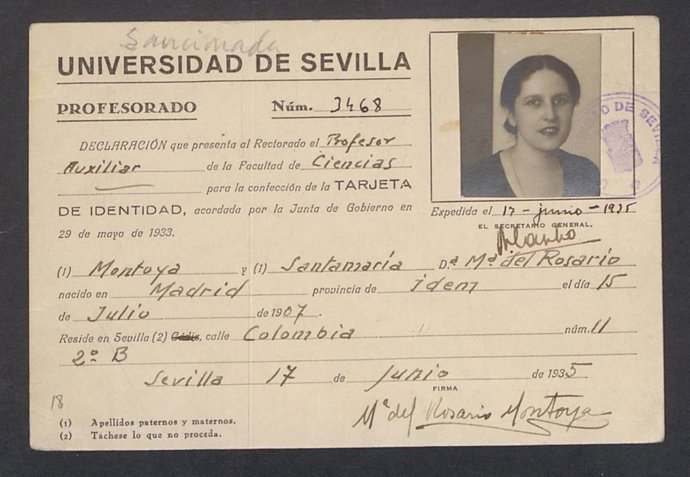 Sancionada
UNIVERSIDAD DE SEVILLA
PROFESORADO Núm. 3468
DECLARACIÓN que presenta al Rectorado el Profesor
Auxiliar de la Facultad de Ciencias
para la confección de la TARJETA
DE IDENTIDAD, acordada por la Junta de Gobierno en
29 de mayo de 1933.
DO DE SEVILLA
Expedida el 17-junio-1935
EL SECRETARIO GENERAL,
(1) Montoya y (1) Santamaría D.ª Mª del Rosario
nacido en Madrid provincia de idem el día 15
de Julio de 1907.
Reside en Sevilla (2) Cádiz, calle Colombia " núm. 11
2º B
Sevilla 17 de junio de 1935
FIRMA
Mª del Rosario Montoya
18
(1) Apellidos paternos y maternos.
(2) Táchese lo que no proceda.